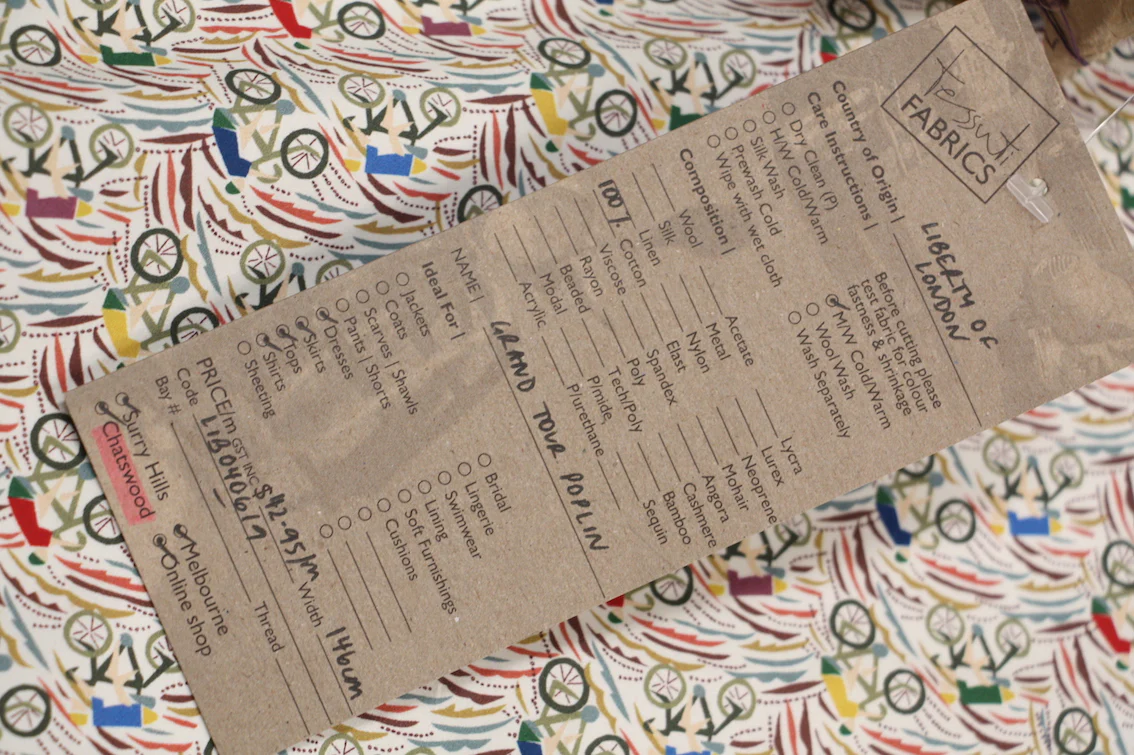 tessuti
FABRICS
Country of Origin | LIBERTY OF
LONDON
Care Instructions |
Before cutting please
test fabric for colour
fastness & shrinkage
Dry Clean (P)
H/W Cold/Warm
Silk Wash
Prewash Cold
Wipe with wet cloth
M/W Cold/Warm
Wool Wash
Wash Separately
Composition |
Wool
Silk
Linen
100% Cotton
Viscose
Rayon
Beaded
Modal
Acrylic
Acetate
Metal
Nylon
Elast
Spandex
Poly
Tech/Poly
P/mide
P/urethane
Lycra
Lurex
Neoprene
Mohair
Angora
Cashmere
Bamboo
Sequin
NAME | GRAND TOUR POPLIN
Ideal For |
Jackets
Coats
Scarves | Shawls
Pants | Shorts
Dresses
Skirts
Tops
Shirts
Sheeting
Bridal
Lingerie
Swimwear
Lining
Soft Furnishings
Cushions
PRICE/m GST INC $42.95/m Width 146cm
Code LIB040619 Thread
Bay #
Surry Hills
Chatswood
Melbourne
Online shop